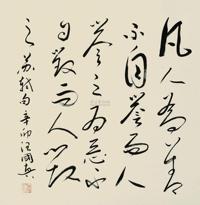 凡人為善
不自譽而人
譽之為惡不
自毀而人毀
之 蘇軾句 辛卯 汪國真